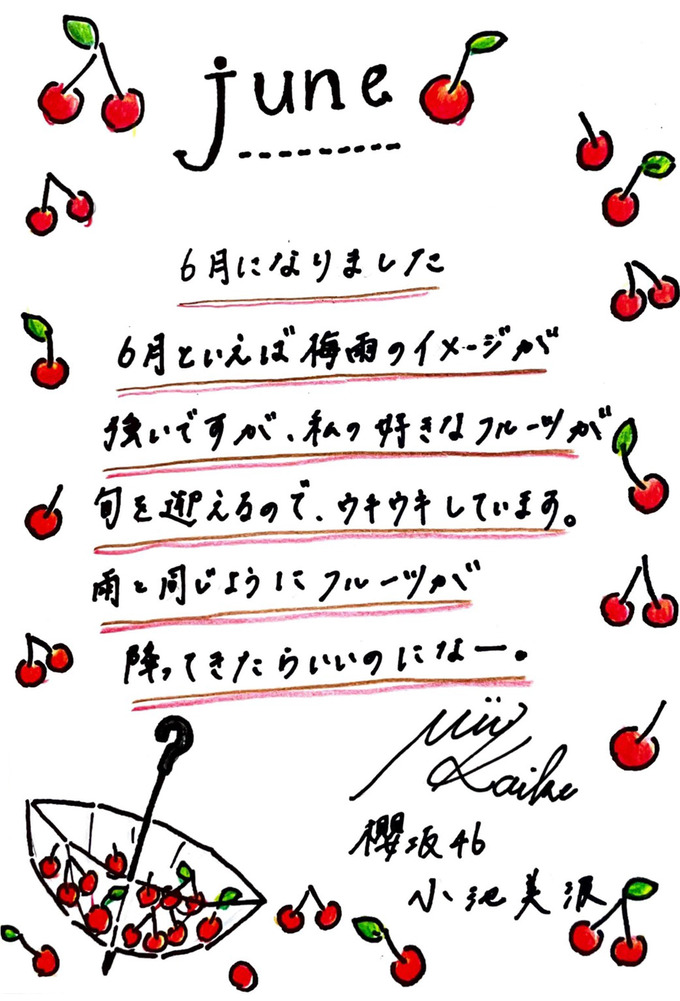 june
6月になりました
6月といえば梅雨のイメージが
強いですが、私の好きなフルーツが
旬を迎えるので、ウキウキしています。
雨と同じようにフルーツが
降ってきたらいいのになー。
Mii
Koike
櫻坂46
小池美波